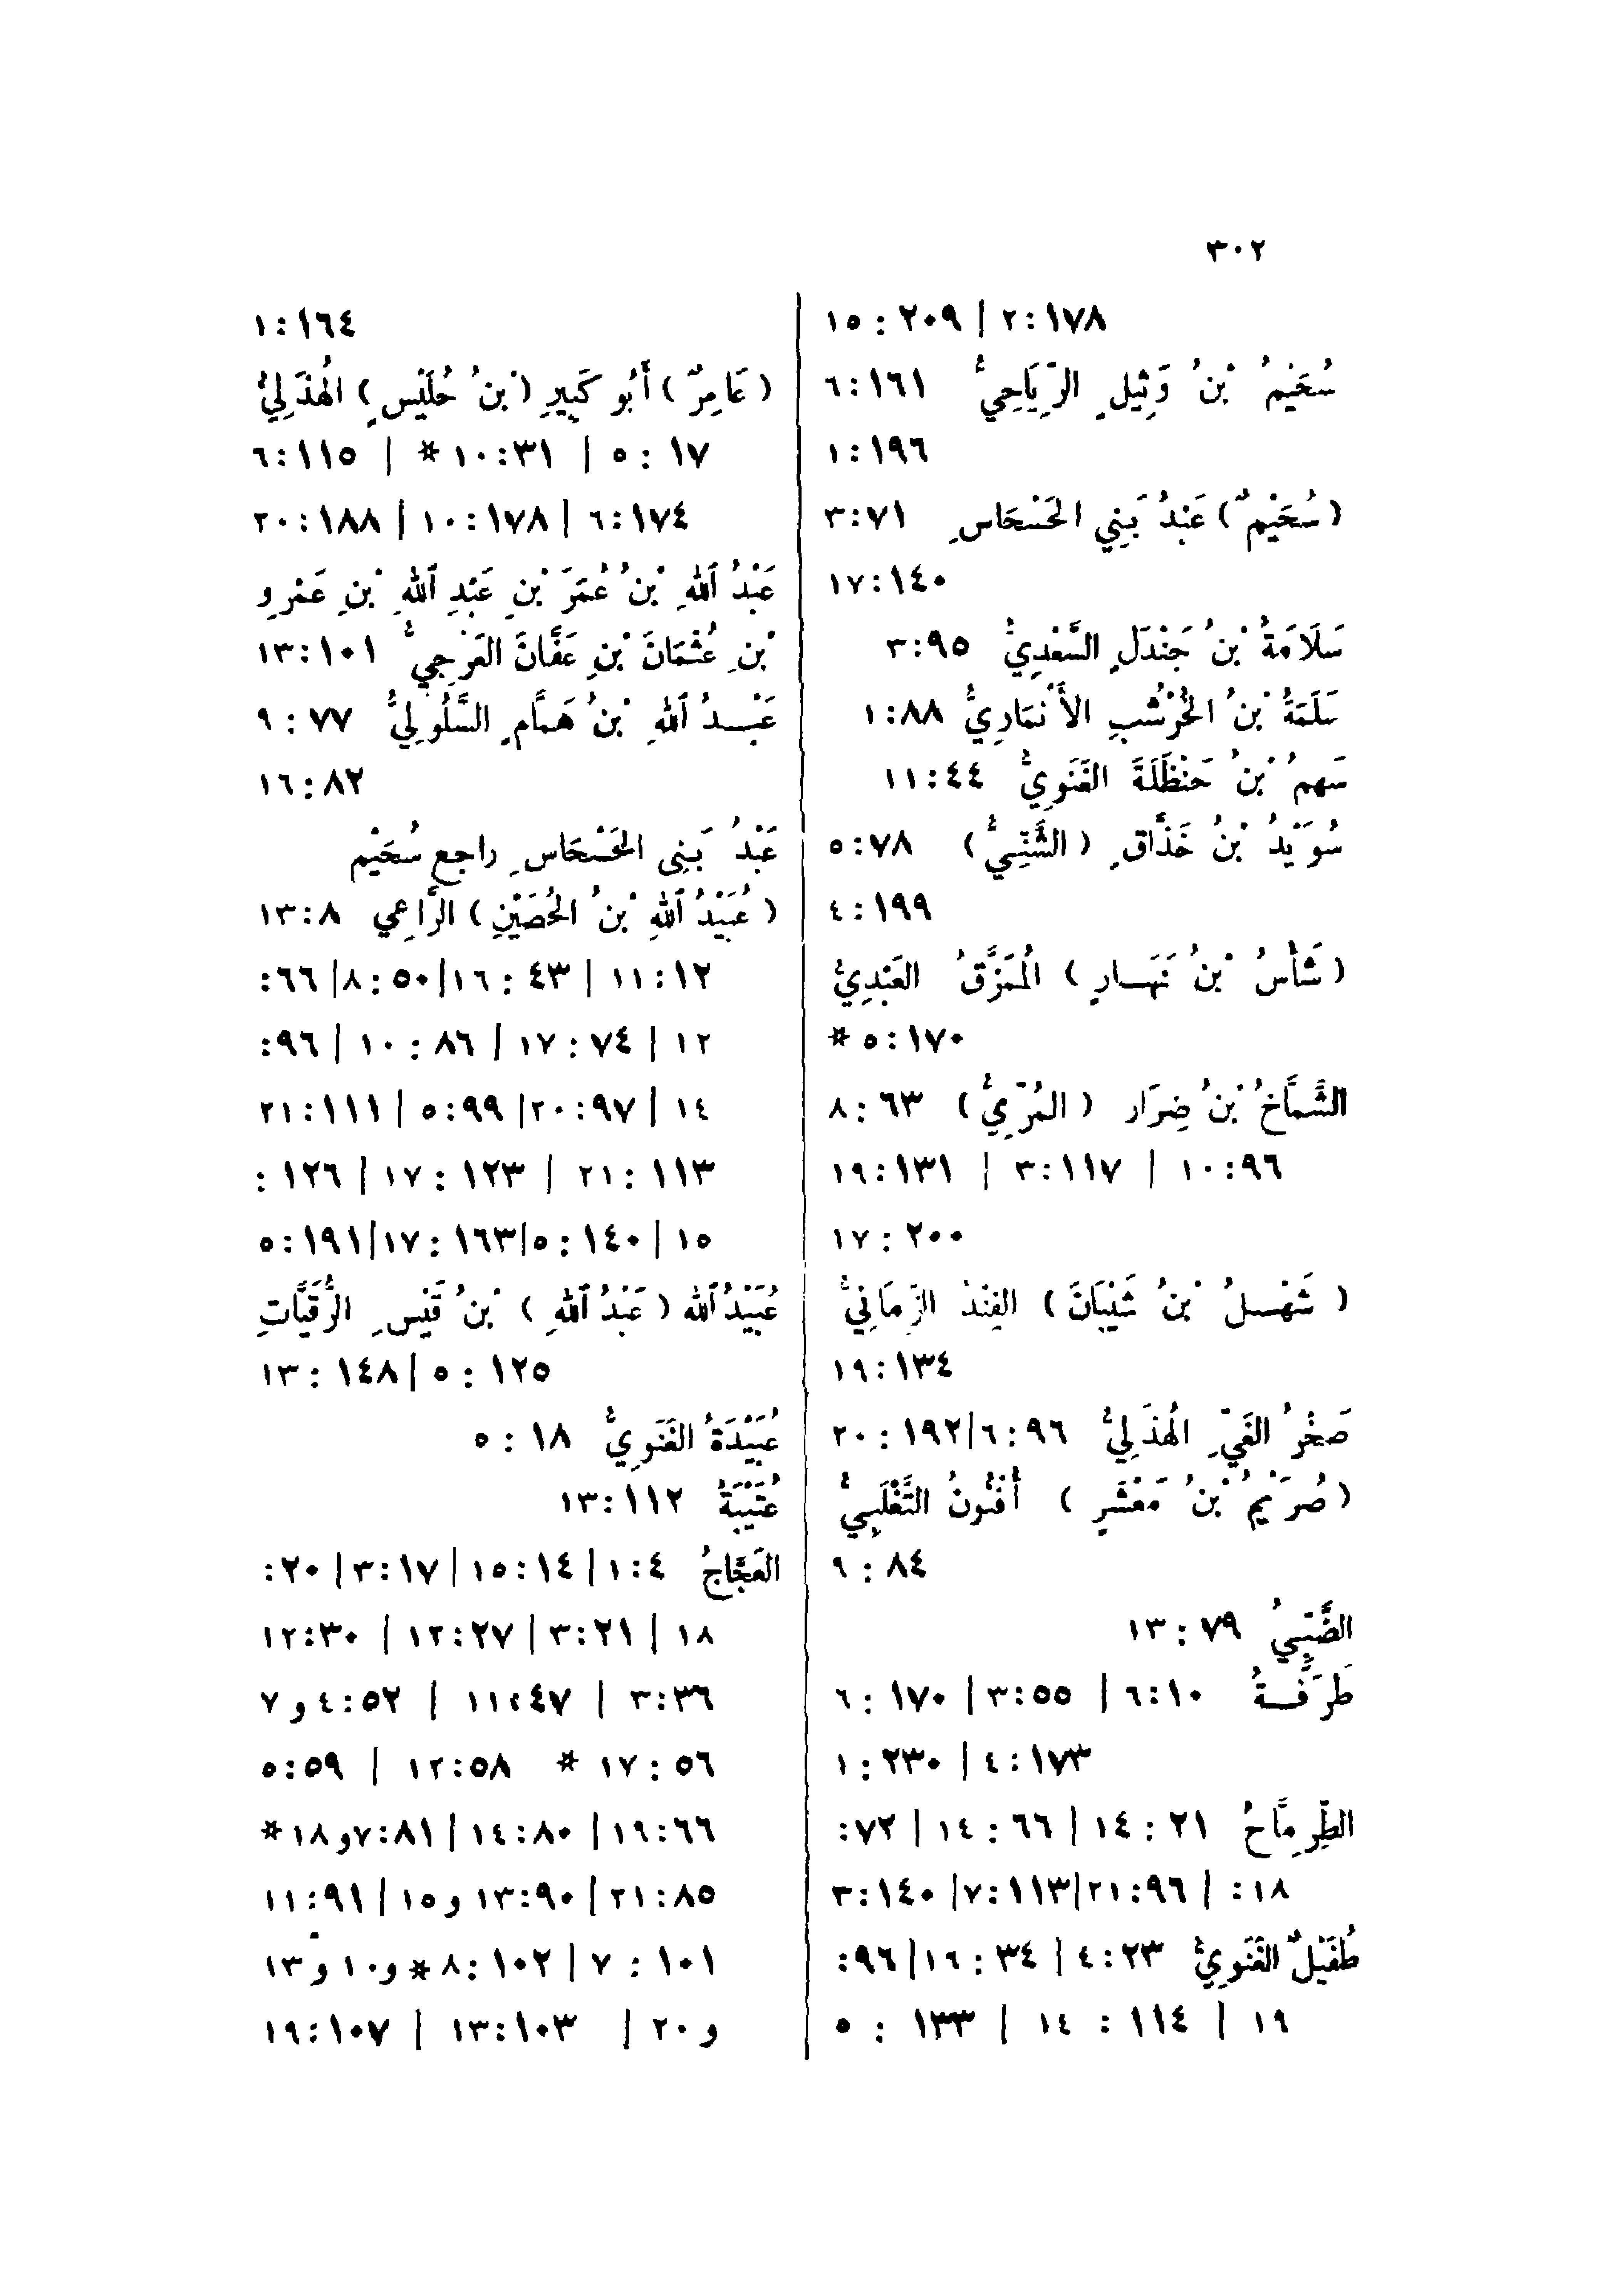 ٣٠٢
١٧٨:٢ | ٢٠٩: ١٥
سُحَيْمُ بْنُ وَثِيلٍ الرِّيَاحِيُّ ١٦١:٦
١٩٦:١
(سُحَيْمٌ) عَبْدُ بَنِي الحَسْحَاسِ ٧١:٣
١٤٠:١٧
سَلَامَةُ بْنُ جَنْدَلٍ السَّعْدِيُّ ٩٥:٣
سَلَمَةُ بْنُ الخُرْشُبِ الأَنْمَارِيُّ ٨٨:١
سَهمُ بْنُ حَنْظَلَةَ الغَنَوِيُّ ٤٤:١١
سُوَيْدُ بْنُ خَذَّاقٍ (الشَّنِّيُّ) ٧٨:٥
١٩٩:٤
(شَأْسُ بْنُ نَهَارٍ) المُمَزَّقُ العَبْدِيُّ
١٧٠:٥ *
الشَّمَّاخُ بْنُ ضِرَار (المُرِّيُّ) ٦٣:٨
٩٦:١٠ | ١١٧:٣ | ١٣١:١٩
٢٠٠: ١٧
(شَهْلُ بْنُ شَيْبَانَ) الفِنْدُ الزِّمَانِيُّ
١٣٤:١٩
صَخْرُ الغَيِّ الهُذَلِيُّ ٩٦:٦|١٩٢: ٢٠
(صُرَيْمُ بْنُ مَعْشَرٍ) أُفْنُونُ التَّغْلَبِيُّ
٨٤: ٩
الضَّبِّيُّ ٧٩: ١٣
طَرَفَةُ ١٠:٦ | ٥٥:٣ | ١٧٠: ٦
١٧٣:٤ | ٢٣٠: ١
الطِّرِمَّاحُ ٢١: ١٤ | ٦٦: ١٤ | ٧٢:
١٨: | ٩٦:٢١|١١٣:٧| ١٤٠:٣
طُفَيْلٌ الغَنَوِيُّ ٢٣:٤ | ٣٤: ١٦|٩٦:
١٩ | ١١٤: ١٤ | ١٣٣: ٥
١٦٤:١
(عَامِرٌ) أَبُو كَبِيرٍ (بْنُ حُلَيْسٍ) الهُذَلِيُّ
١٧: ٥ | ٣١:١٠* | ١١٥:٦
١٧٤:٦ | ١٧٨:١٠ | ١٨٨:٢٠
عَبْدُ ٱللهِ بْنُ عُمَرَ بْنِ عَبْدِ ٱللهِ بْنِ عَمْرِو
بْنِ عُثْمَانَ بْنِ عَفَّانَ العَرْجِيُّ ١٠١:١٣
عَبْدُ ٱللهِ بْنُ هَمَّامٍ السَّلُولِيُّ ٧٧: ٩
٨٢:١٦
عَبْدُ بَنِى الحَسْحَاسِ راجع سُحَيْم
(عُبَيْدُ ٱللهِ بْنُ الحُصَيْنِ) الرَّاعِي ٨:١٣
١٢:١١ | ٤٣: ١٦|٥٠:٨| ٦٦:
١٢ | ٧٤: ١٧ | ٨٦: ١٠ | ٩٦:
١٤ | ٩٧:٢٠| ٩٩:٥ | ١١١:٢١
١١٣: ٢١ | ١٢٣: ١٧ | ١٢٦:
١٥ | ١٤٠: ٥|١٦٣: ١٧|١٩١:٥
عُبَيْدُ ٱلله (عَبْدُ ٱللهِ) بْنُ قَيْسِ الرُّقَيَّاتِ
١٢٥: ٥ | ١٤٨: ١٣
عُبَيْدَةُ الغَنَوِيُّ ١٨: ٥
عُتَيْبَةُ ١١٢:١٣
العَجَّاجُ ٤:١ | ١٤:١٥ | ١٧:٣ | ٢٠:
١٨ | ٢١:٣ | ٢٧:١٢ | ٣٠:١٢
٣٦:٣ | ٤٧:١١ | ٥٢:٤ و ٧
٥٦: ١٧ * ٥٨:١٢ | ٥٩:٥
٦٦:١٩ | ٨٠:١٤ | ٨١:٧و١٨*
٨٥:٢١ | ٩٠:١٣ و ١٥ | ٩١:١١
١٠١: ٧ | ١٠٢:٨* و١٠ و١٣
و ٢٠ | ١٠٣:١٣ | ١٠٧:١٩